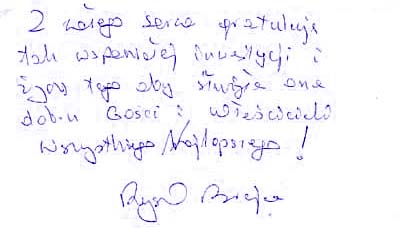 Z całego serca gratuluję
tak wspaniałej inwestycji i
życzę tego aby służyła ona
dobru Gości i właścicieli
Wszystkiego Najlepszego!